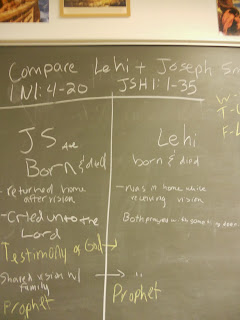 Compare Lehi + Joseph Sm
1 N 1:4-20 JSH 1:1-35
JS
Lehi
Born & died
born & died
- returned home after vision
- was in home while receiving vision
- Cried unto the Lord
Both prayed with
Testimony of God →
Shared vision w/ family → "
Prophet
Prophet
W:
T-L
F-L